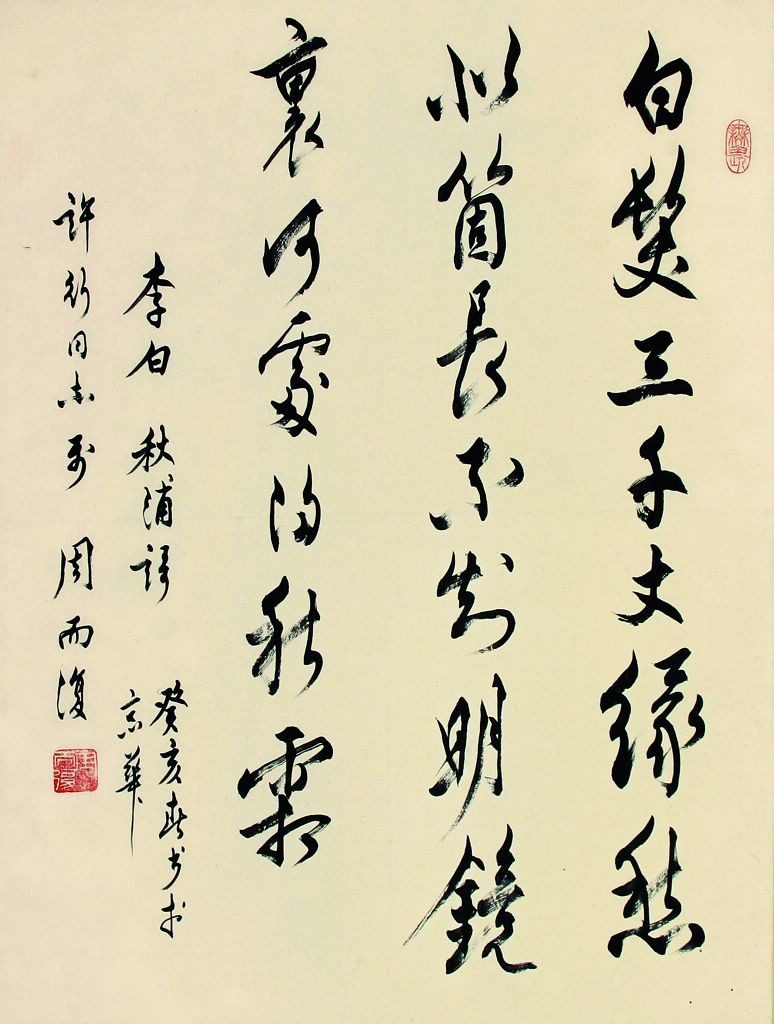 白髮三千丈緣愁
似箇長不知明鏡
裏何處得秋霜
李白 秋浦謌
癸亥春書於
京華
許行同志 周而復